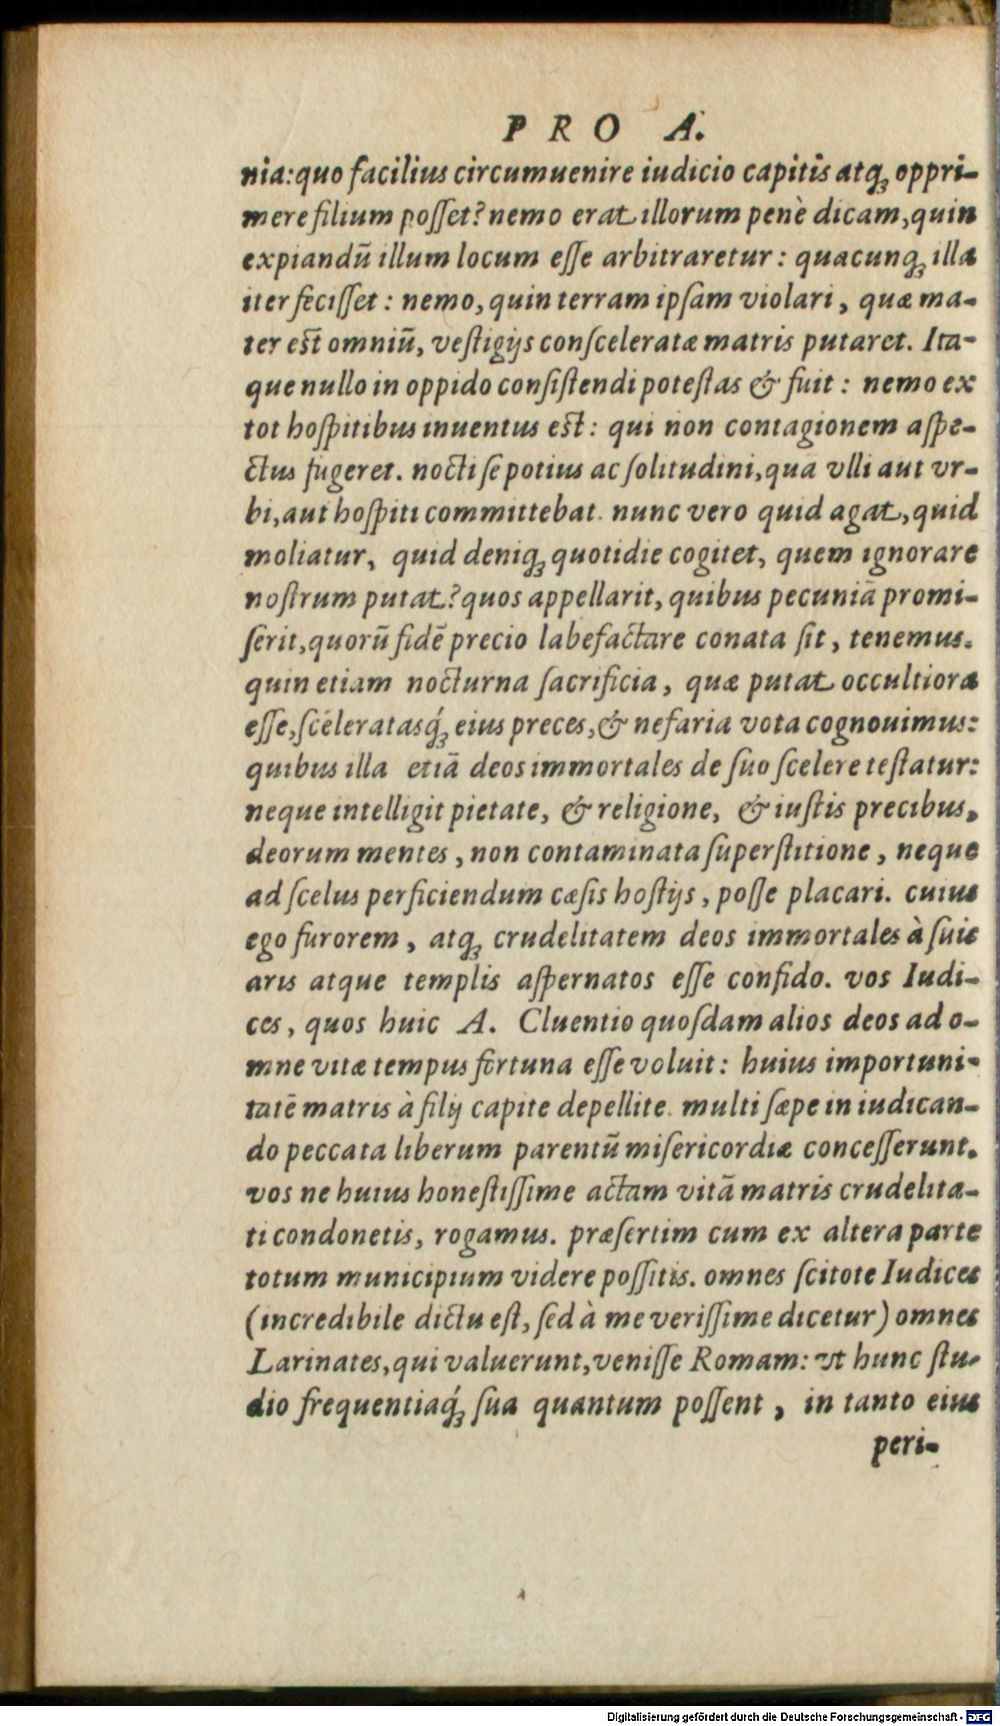 PRO A.
nia: quo facilius circumuenire iudicio capitis atq; oppri-
mere filium posset? nemo erat illorum penè dicam, quin
expiandū illum locum esse arbitraretur: quacunq; illa
iter fecisset: nemo, quin terram ipsam violari, quæ ma-
ter est omniū, vestigijs consceleratæ matris putaret. Ita-
que nullo in oppido consistendi potestas & fuit: nemo ex
tot hospitibus inuentus est: qui non contagionem aspe-
ctus fugeret. nocti se potius ac solitudini, qua vlli aut vr-
bi, aut hospiti committebat. nunc vero quid agat, quid
moliatur, quid deniq; quotidie cogitet, quem ignorare
nostrum putat? quos appellarit, quibus pecuniā promi-
serit, quorū fidē precio labefactare conata sit, tenemus.
quin etiam nocturna sacrificia, quæ putat occultiora
esse, sceleratasq́; eius preces, & nefaria vota cognouimus:
quibus illa etiā deos immortales de suo scelere testatur:
neque intelligit pietate, & religione, & iustis precibus,
deorum mentes, non contaminata superstitione, neque
ad scelus perficiendum cæsis hostijs, posse placari. cuius
ego furorem, atq; crudelitatem deos immortales à suis
aris atque templis aspernatos esse confido. vos Iudi-
ces, quos huic A. Cluentio quosdam alios deos ad o-
mne vitæ tempus fortuna esse voluit: huius importuni-
tatē matris à filij capite depellite. multi sæpe in iudican-
do peccata liberum parentū misericordiæ concesserunt.
vos ne huius honestissime actam vitā matris crudelita-
ti condonetis, rogamus. præsertim cum ex altera parte
totum municipium videre possitis. omnes scitote Iudices
(incredibile dictu est, sed à me verissime dicetur) omnes
Larinates, qui valuerunt, venisse Romam: vt hunc stu-
dio frequentiaq́; sua quantum possent, in tanto eius
peri-
Digitalisierung gefördert durch die Deutsche Forschungsgemeinschaft - DFG